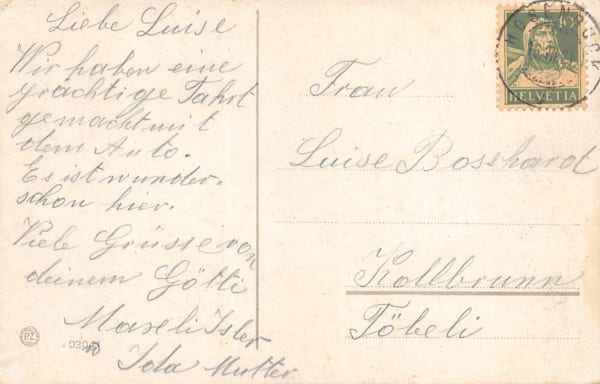 Liebe Luise
Wir haben eine
prächtige Fahrt
gemacht mit
dem Auto.
Es ist wunder-
schön hier.
Viele Grüsse von
deinem Götti
Isler
Ida Mutter
PZ
Frau
Luise Bosshardt
Kollbrunn
Töbeli
10
HELVETIA
HOSENRUCK